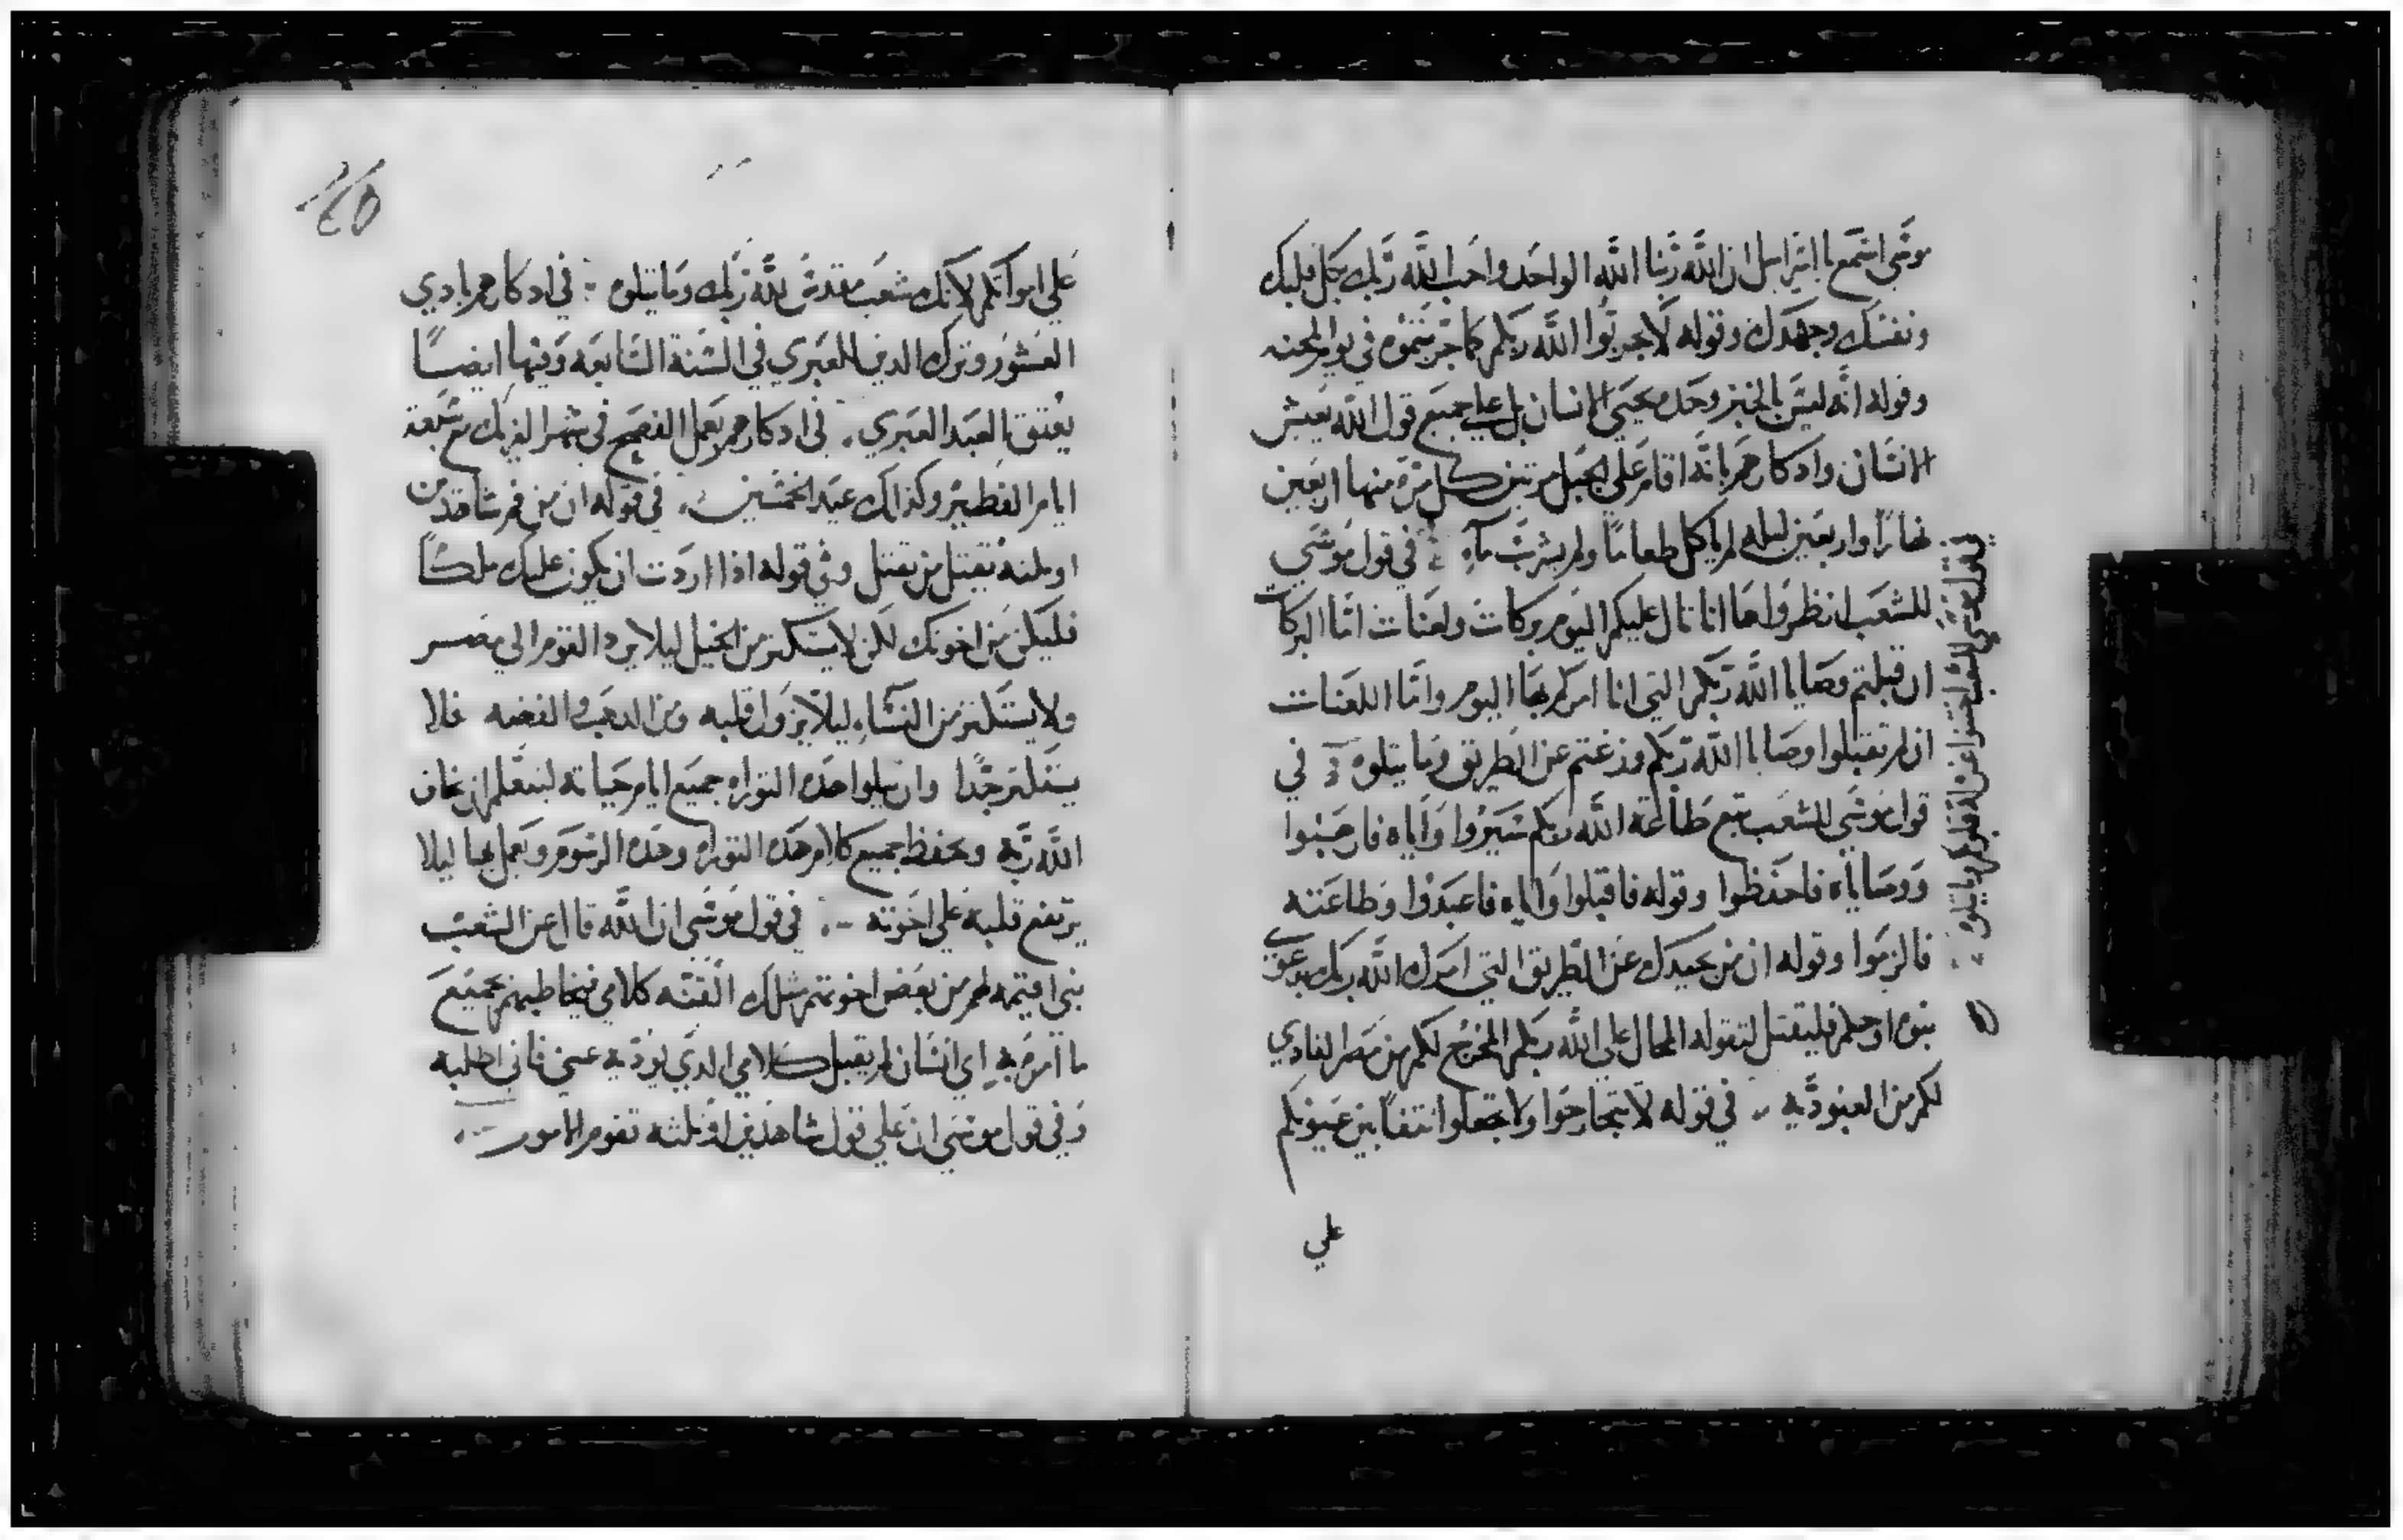 موسى اسمع يا اسرايل ان الله ربنا الله الواحد واحب الله ربك بكل قلبك
ونفسك وجهدك وقوله لا تجربوا الله ربكم كما جربتموه في يوم المحنه
وقوله انه ليس بالخبز وحده يحيى الانسان بل على جميع قول الله يعيش
الانسان وادكارهم بانه اقام على الجبل مرتين كل مره منها اربعين
نهارا واربعين ليله لم ياكل طعاما ولم يشرب مآء في قول موسى
للشعب انظروا ها انا تال عليكم اليوم بركات ولعنات اما البركات
ان قبلتم وصايا الله ربكم التي انا امركم بها اليوم واما اللعنات
ان لم تقبلوا وصايا الله ربكم وزغتم عن الطريق وما يتلوه في
قول موسى للشعب تبع طاعة الله ربكم سيروا واياه فارهبوا
ووصاياه فاحفظوا وقوله فاقبلوا واياه فاعبدوا وطاعته
فالزموا وقوله ان من يحيدك عن الطريق التي امرك الله ربك بدعوى
نبوه او حلم فليقتل لتقوله المحال على الله ربكم المخرج لكم من مصر الفادي
لكم من العبوديه في قوله لا تتجارحوا ولا تجعلوا نتفا بين عيونكم
علي
في قول موسى للشعب اختنوا غرل قلوبكم وما يتلوه
على امواتكم لانك شعب مقدس لله ربك وما يتلوه في ادكارهم بادي
العشور وترك الدين للعبري في السنة السابعه وفيها ايضا
يعتق العبد العبري في ادكارهم بعمل الفصح في شهر الفريك مع سبعة
ايام الفطير وكذلك عيد الخمسين في قوله ان من فم شاهدين
او ثلثه يقتل من يقتل وفي قوله اذا اردت ان يكون عليك ملكا
فليكن من اخوتك لكن لا يستكثر من الخيل ليلا يرد القوم الى مصر
ولا يستكثر من النسآء ليلا يزول قلبه ومن الدهب والفضه فلا
يستكثر جدا وان يتلوا هذه التوراه جميع ايام حياته ليتعلم ان يخاف
الله ربه ويحفظ جميع كلام هذه التوراه وهذه الرسوم ويعمل بها ليلا
يرتفع قلبه على اخوته في قول موسى ان الله قال عن الشعب
نبي اقيمه لهم من بعض اخوتهم مثلك القنه كلامي فيخاطبهم بجميع
ما آمره به اي انسان لم يقبل كلامي الدي يوديه عني فاني اطلبه
وفي قول موسى ان على قول شاهدين او ثلثه تقوم الامور